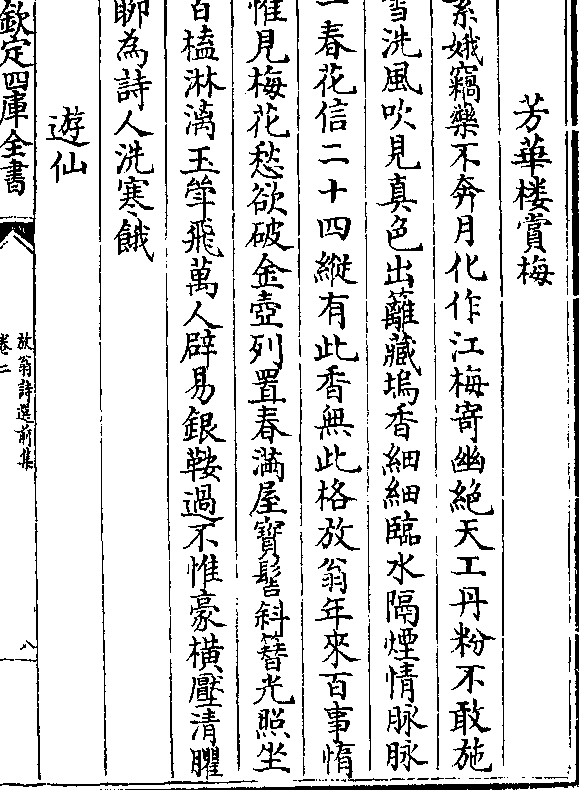 芳華楼賞梅
素娥竊藥不奔月化作江梅寄幽絶天工丹粉不敢施
雪洗風吹見真色出蘺藏塢香細細臨水隔煙情脉脉
一春花信二十四縱有此香無此格放翁年來百事惰
惟見梅花愁欲破金壺列置春滿屋寳髻斜簮光照坐
百榼淋漓玉斝飛萬人辟易銀鞍過不惟豪横壓清臞
聊為詩人洗寒餓
遊仙
欽定四庫全書
放翁詩選前集
卷二
八